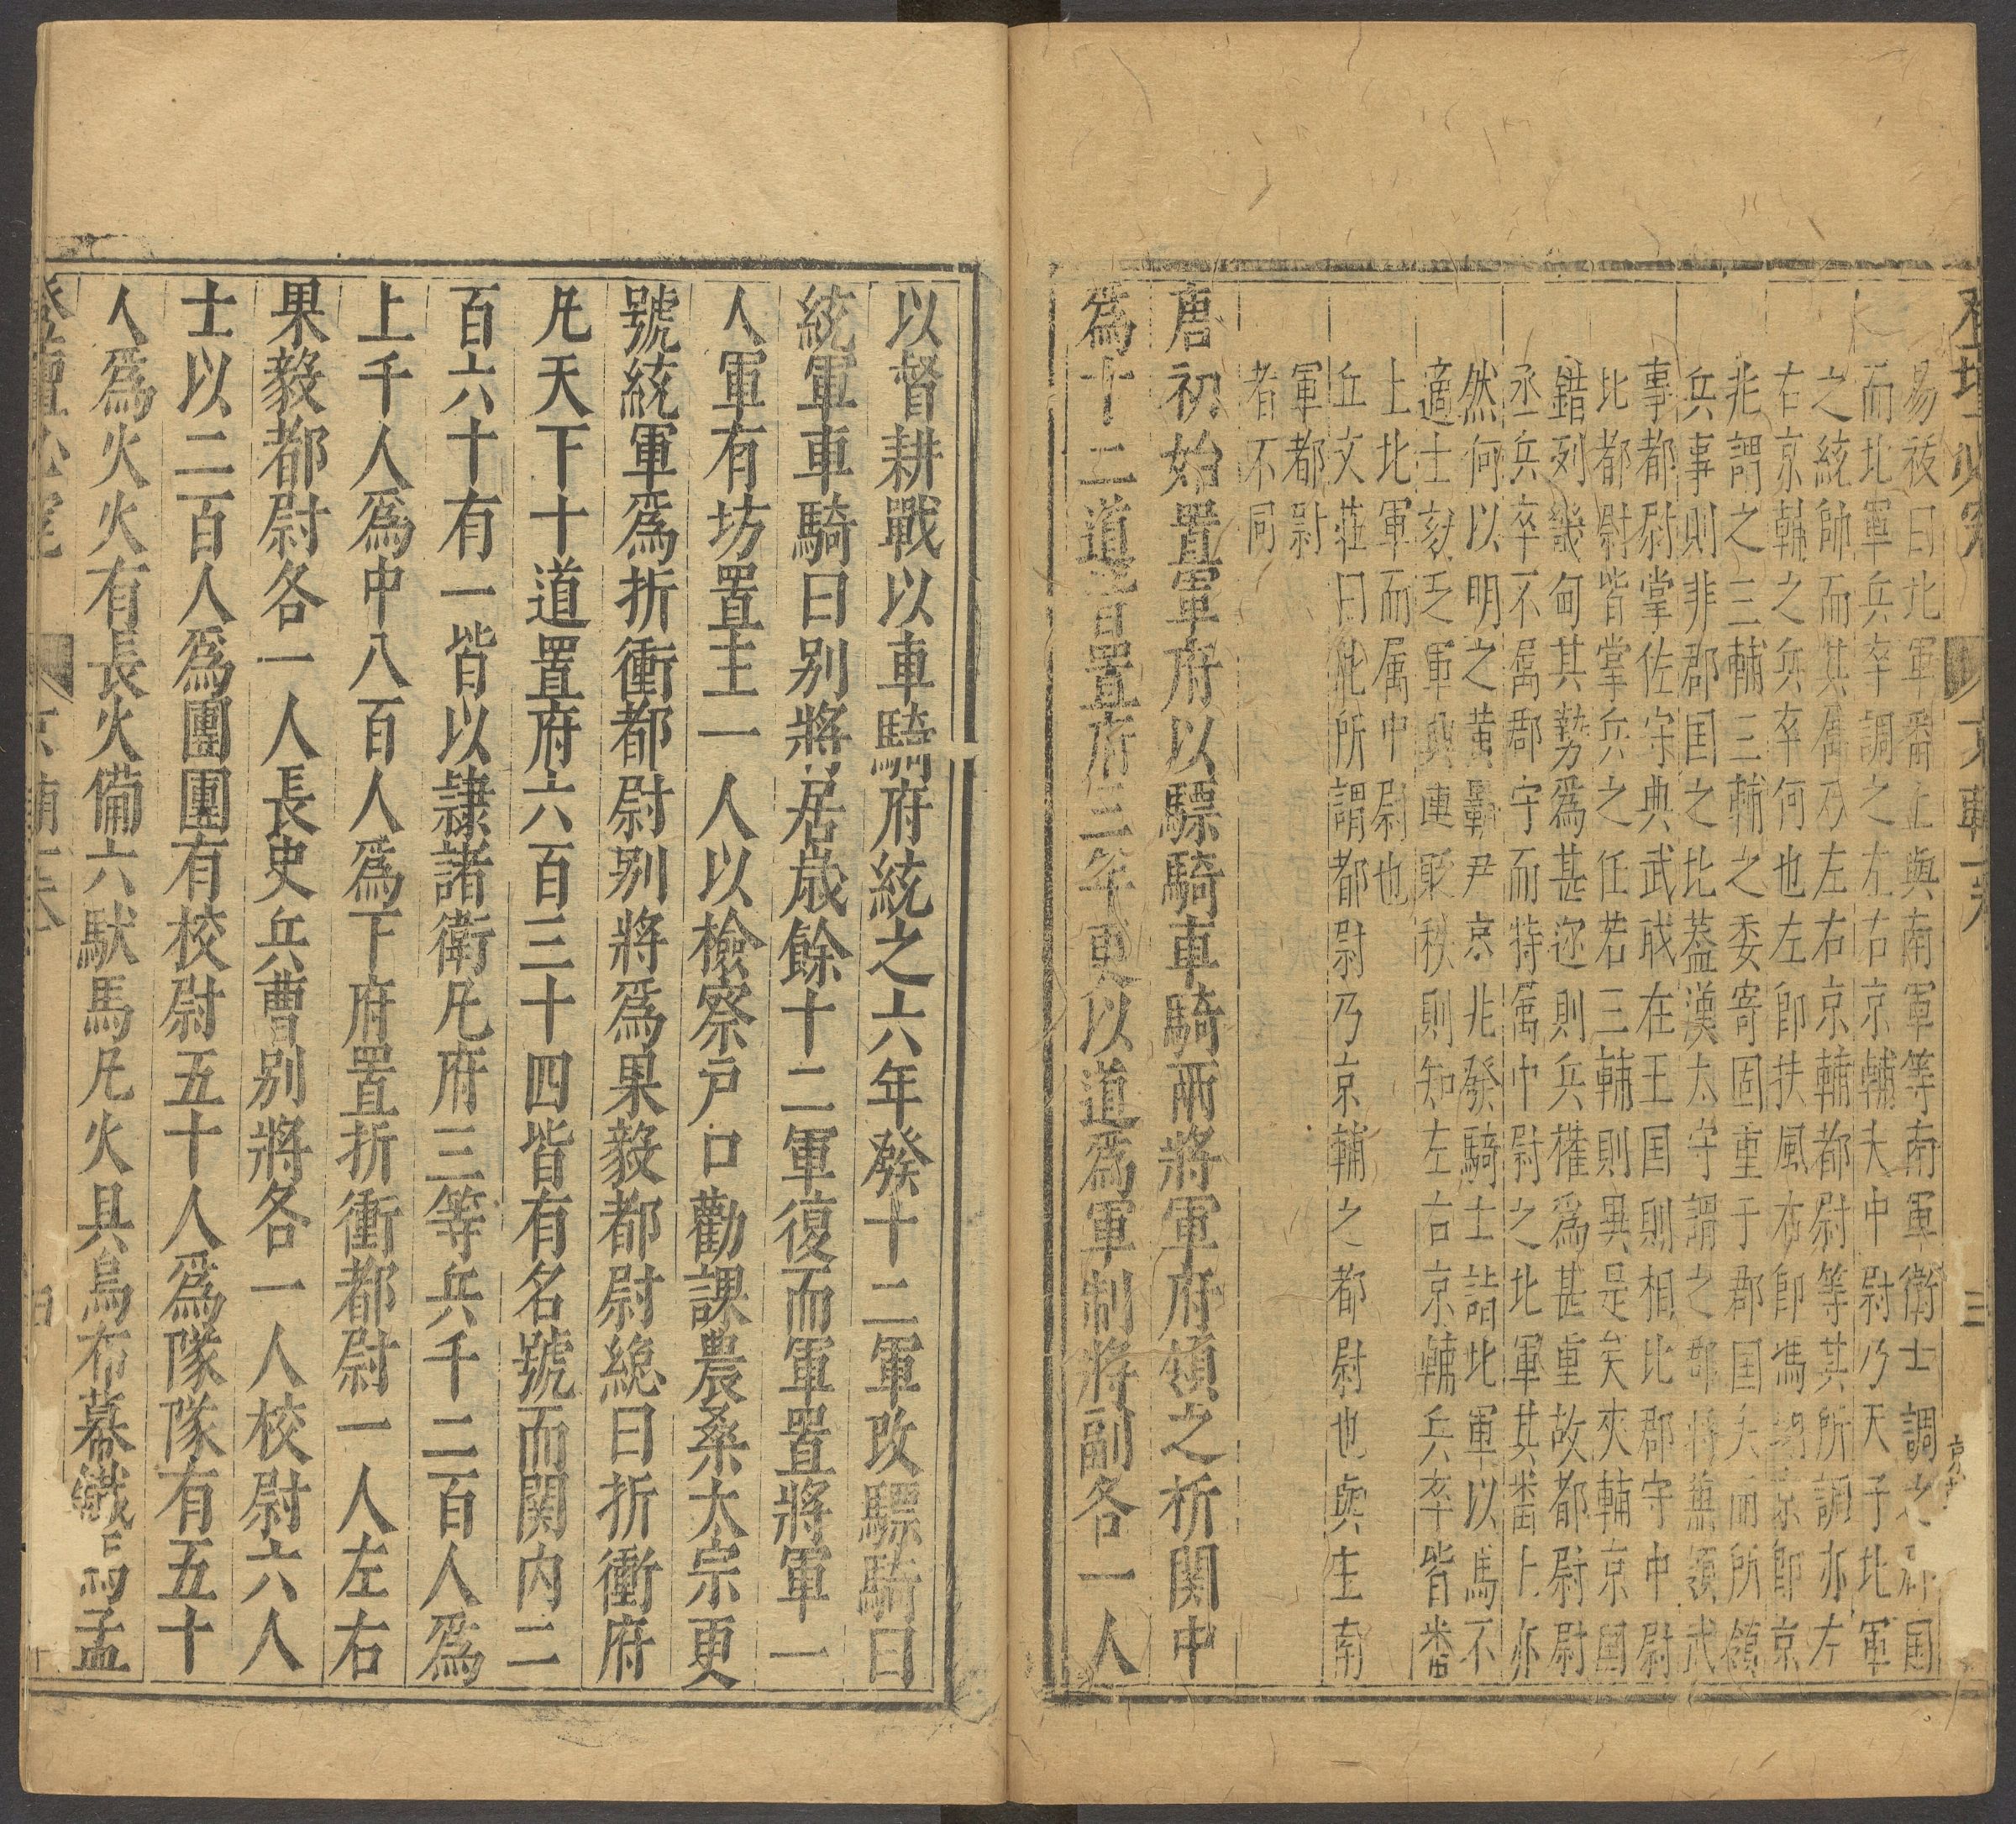 登壇必究
京輔一卷
三
易祓曰北軍番上與南軍等南軍衛士調之郡国
而北軍兵卒調之左右京輔夫中尉乃天子北軍
之統帥而其屬乃左右京輔都尉等其所調亦左
右京輔之兵卒何也左卽扶風右卽馮翊京卽京
兆謂之三輔三輔之委寄固重于郡国夫而所領
兵事則非郡国之比葢漢太守謂之郡將兼領武
事都尉掌佐守典武戢在王国則相比郡守中尉
比都尉皆掌兵之任若三輔則異是矣夾輔京圍
錯列畿甸其勢爲甚迩則兵權爲甚重故都尉尉
丞兵卒不属郡守而特属中尉之北軍其畨上亦
然何以明之黃霸尹京兆發騎士詣北軍以馬不
適士劾乏軍興連貶秩則知左右京輔兵卒皆畨
上北軍而属中尉也
丘文莊曰此所謂都尉乃京輔之都尉也與生南
軍都尉
者不同
唐初始置軍府以驃騎車騎兩將軍府領之析関中
爲十二道皆置府三年更以道爲軍制將副各一人
以督耕戰以車騎府統之六年癈十二軍改驃騎曰
統軍車騎曰别將居歳餘十二軍復而軍置將軍一
人軍有坊置主一人以檢察戸口勸課農桑太宗更
號統軍爲折衝都尉别將爲果毅都尉緫曰折衝府
凢天下十道置府六百三十四皆有名號而関内二
百六十有一皆以隷諸衛凢府三等兵千二百人爲
上千人爲中八百人爲下府置折衝都尉一人左右
果毅都尉各一人長史兵曹别將各一人校尉六人
士以二百人爲團團有校尉五十人爲隊隊有五十
人爲火火有長火備六䭾馬凢火具烏布幕鐵馬盂